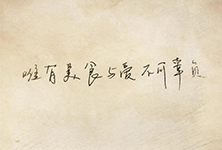 唯有美食与爱不可辜负